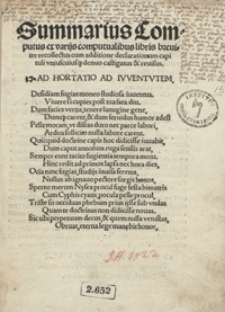 Summarius Com
putus ex varijs computualibus libris breui
ter recollectus cum additione declarationum capi
tuli vniuscuiusq; denuo castigatus & reuisus.
AD HORTATIO AD IVVENTVTEM,
Desidiam fugias moneo studiosa iuuentus.
Viuere si cupies post tua fata diu.
Dum facies verna, tenere lanugine gene,
Dumq; carent, & dum feruidus humor adest
Pelle moram, vt discas duro nec parce labori,
Ardua sollicito nulla labore carent.
Quicquid doctrine capis hoc didicisse iuuabit,
Dum caput annosum ruga senilis arat,
Semper eunt tacito fugientia tempora motu,
Hinc redit ad primos lapsa nec hora dies,
Ocia nunc fugias, studijs inuisa serenis,
Nullus ab ignauo pectore surgit honos,
Sperne merum Nysea procul fuge festa bimatris
Cum Cyphis cyam pocula pelle procul,
Triste sit occiduas phebum prius isse sub vndas
Quam te doctrinas non didicisse nouas.
Sic tibi perpetuum decus, & quem nulla vetustas,
Obruat, eterna lege manebit honor,
2.652